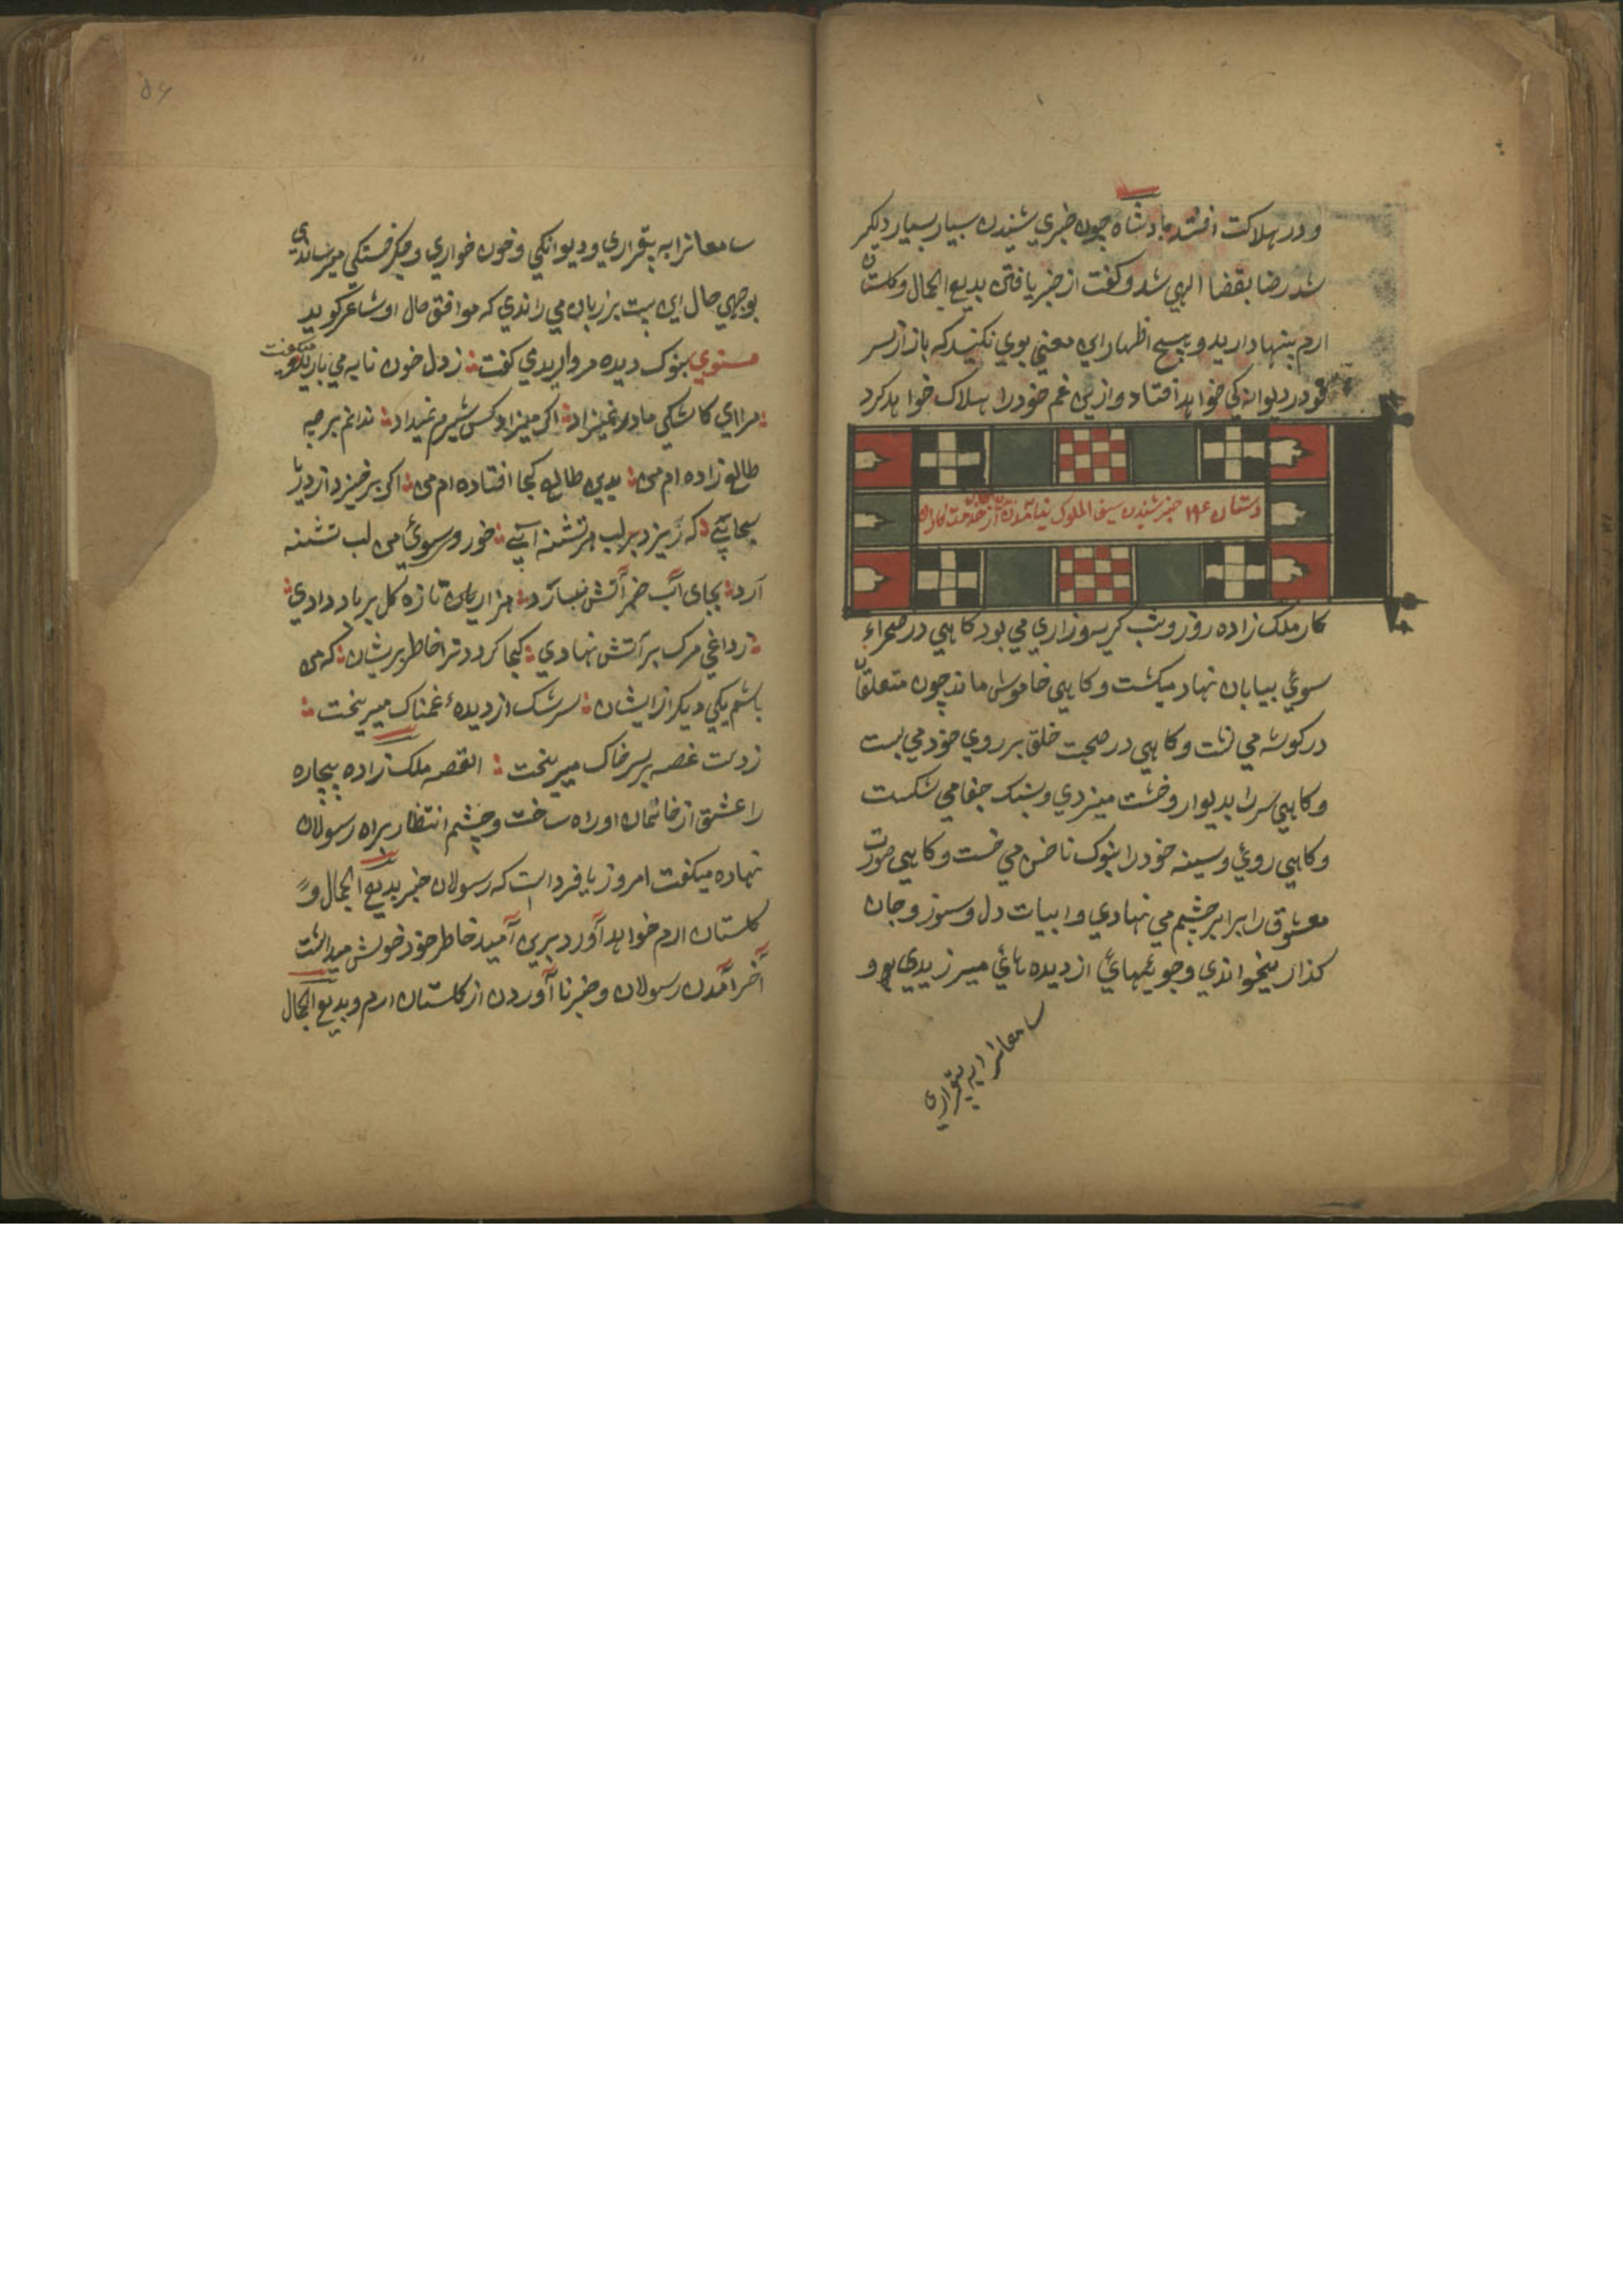 و در هلاکت افتد بادشاه چون خبری شنیدن بسیار بسیار دلگیر
شد رضا بقضا الهی شد و گفت از خبر یافتن بدیع الجمال و گلستان
ارم پنهاد دارید و هیچ اظهار این معنی بوی نکنید که باز از سر
خود در دیوانگی خواهد افتاد و ازین غم خود را هلاک خواهد کرد
دستان ۱۹۴ خبر شنیدن سیف الملوک
کار ملک زاده روز و شب گریه و زاری می بود کاهی در صحراء
سوئی بیابان نهاد میکشت و کاهی خاموش ماند چون متعلقان
در کوشه می نشت و کاهی در صحبت خلق بر روی خود می بست
و کاهی سر را بدیوار و خشت میزدی و بسنک جفا می شکست
و کاهی روئی و سینه خود را بنوک ناخن می خست و کاهی صورت
معشوق را برابر چشم می نهادی و ابیات دل و سوز و جان
کذار میخواندی و جوئیهائ از دیده هائی میریزیدی و
سامعانرا به بیقراری
۵۶
سامعانرا به بیقراری و دیوانکی و خون خواری و جکر خستکی میرساندی
بوجهی حال این بیت بر زبان می راندی که موافق حال او شاعر کوید
مسنوی بنوک دیده مرواریدی سفت ز دل خون نابه می بارید میکفت
مرا ای کاشکی مادر نمیزاد اکر میزاد کس شیرم نمیداد ندانم بر چه
طالع زاده ام من بدین طالع کجا افتاده ام من اکر بر خیزد از دریا
سحابی که ریزد بر لب هر تشنه آبی خورد سوئی من لب تشنه
آرد بجای آب جز آتش نبارد هزاران تازه کل بر باد دادی
داغی مرک بر آتش نهادی کجا کردد ترا خاطر پریشان که من
باشم یکی دیکر از ایشان سرشک از دیدهٔ غمناک میریخت
ز دست غصه بر سر خاک میریخت القصه ملک زاده بیچاره
را عشق از خانمان اوراه ساخت و چشم انتظار براه رسولان
نهاده میکفت امروز یا فردا است که رسولان خبر بدیع الجمال و
کلستان ارم خواهد آورد برین آمید خاطر خود خوش میداشت
آخر آمدن رسولان و خبر نا آوردن از کلستان ارم و بدیع الجمال